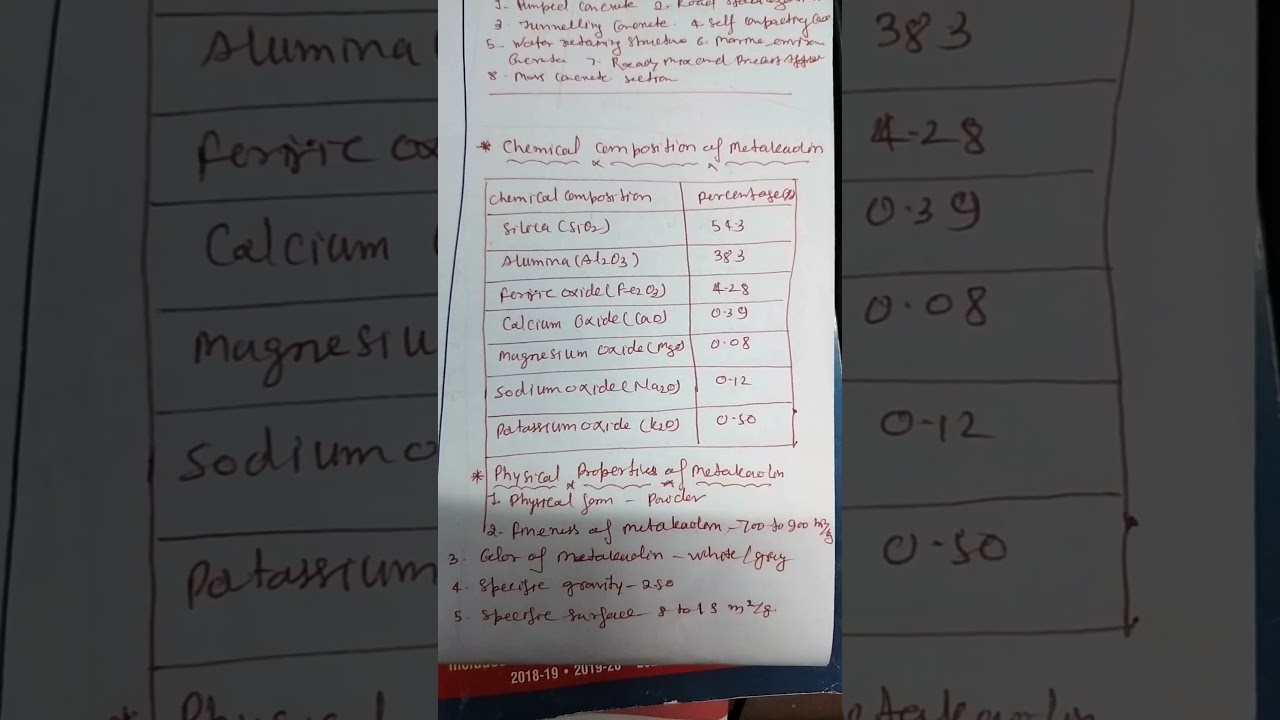 1. Pumped concrete 2. Road
3. Tunnelling Concrete 4. Self compacting
5. Water retaining structure 6. Marine environ
Concrete 7. Ready mix and Precast
8. Mass concrete section
* Chemical composition of Metakaolin
Chemical composition percentage(%)
Silica (SiO2) 543
Alumina (Al2O3) 383
Ferric oxide (Fe2O3) 4.28
Calcium Oxide (CaO) 0.39
Magnesium oxide (MgO) 0.08
Sodium oxide (Na2O) 0.12
Potassium oxide (K2O) 0.50
* Physical Properties of Metakaolin
1. Physical form - Powder
2. Fineness of metakaolin - 700 to 900
3. Color of Metakaolin - white / grey
4. Specific gravity - 2.50
5. Specific surface - 8 to 15 m²/g.
2018-19 • 2019-20
Alumina
383
Ferric
4.28
Calcium
0.39
Magnesiu
0.08
Sodium o
0.12
Potassium
0.50